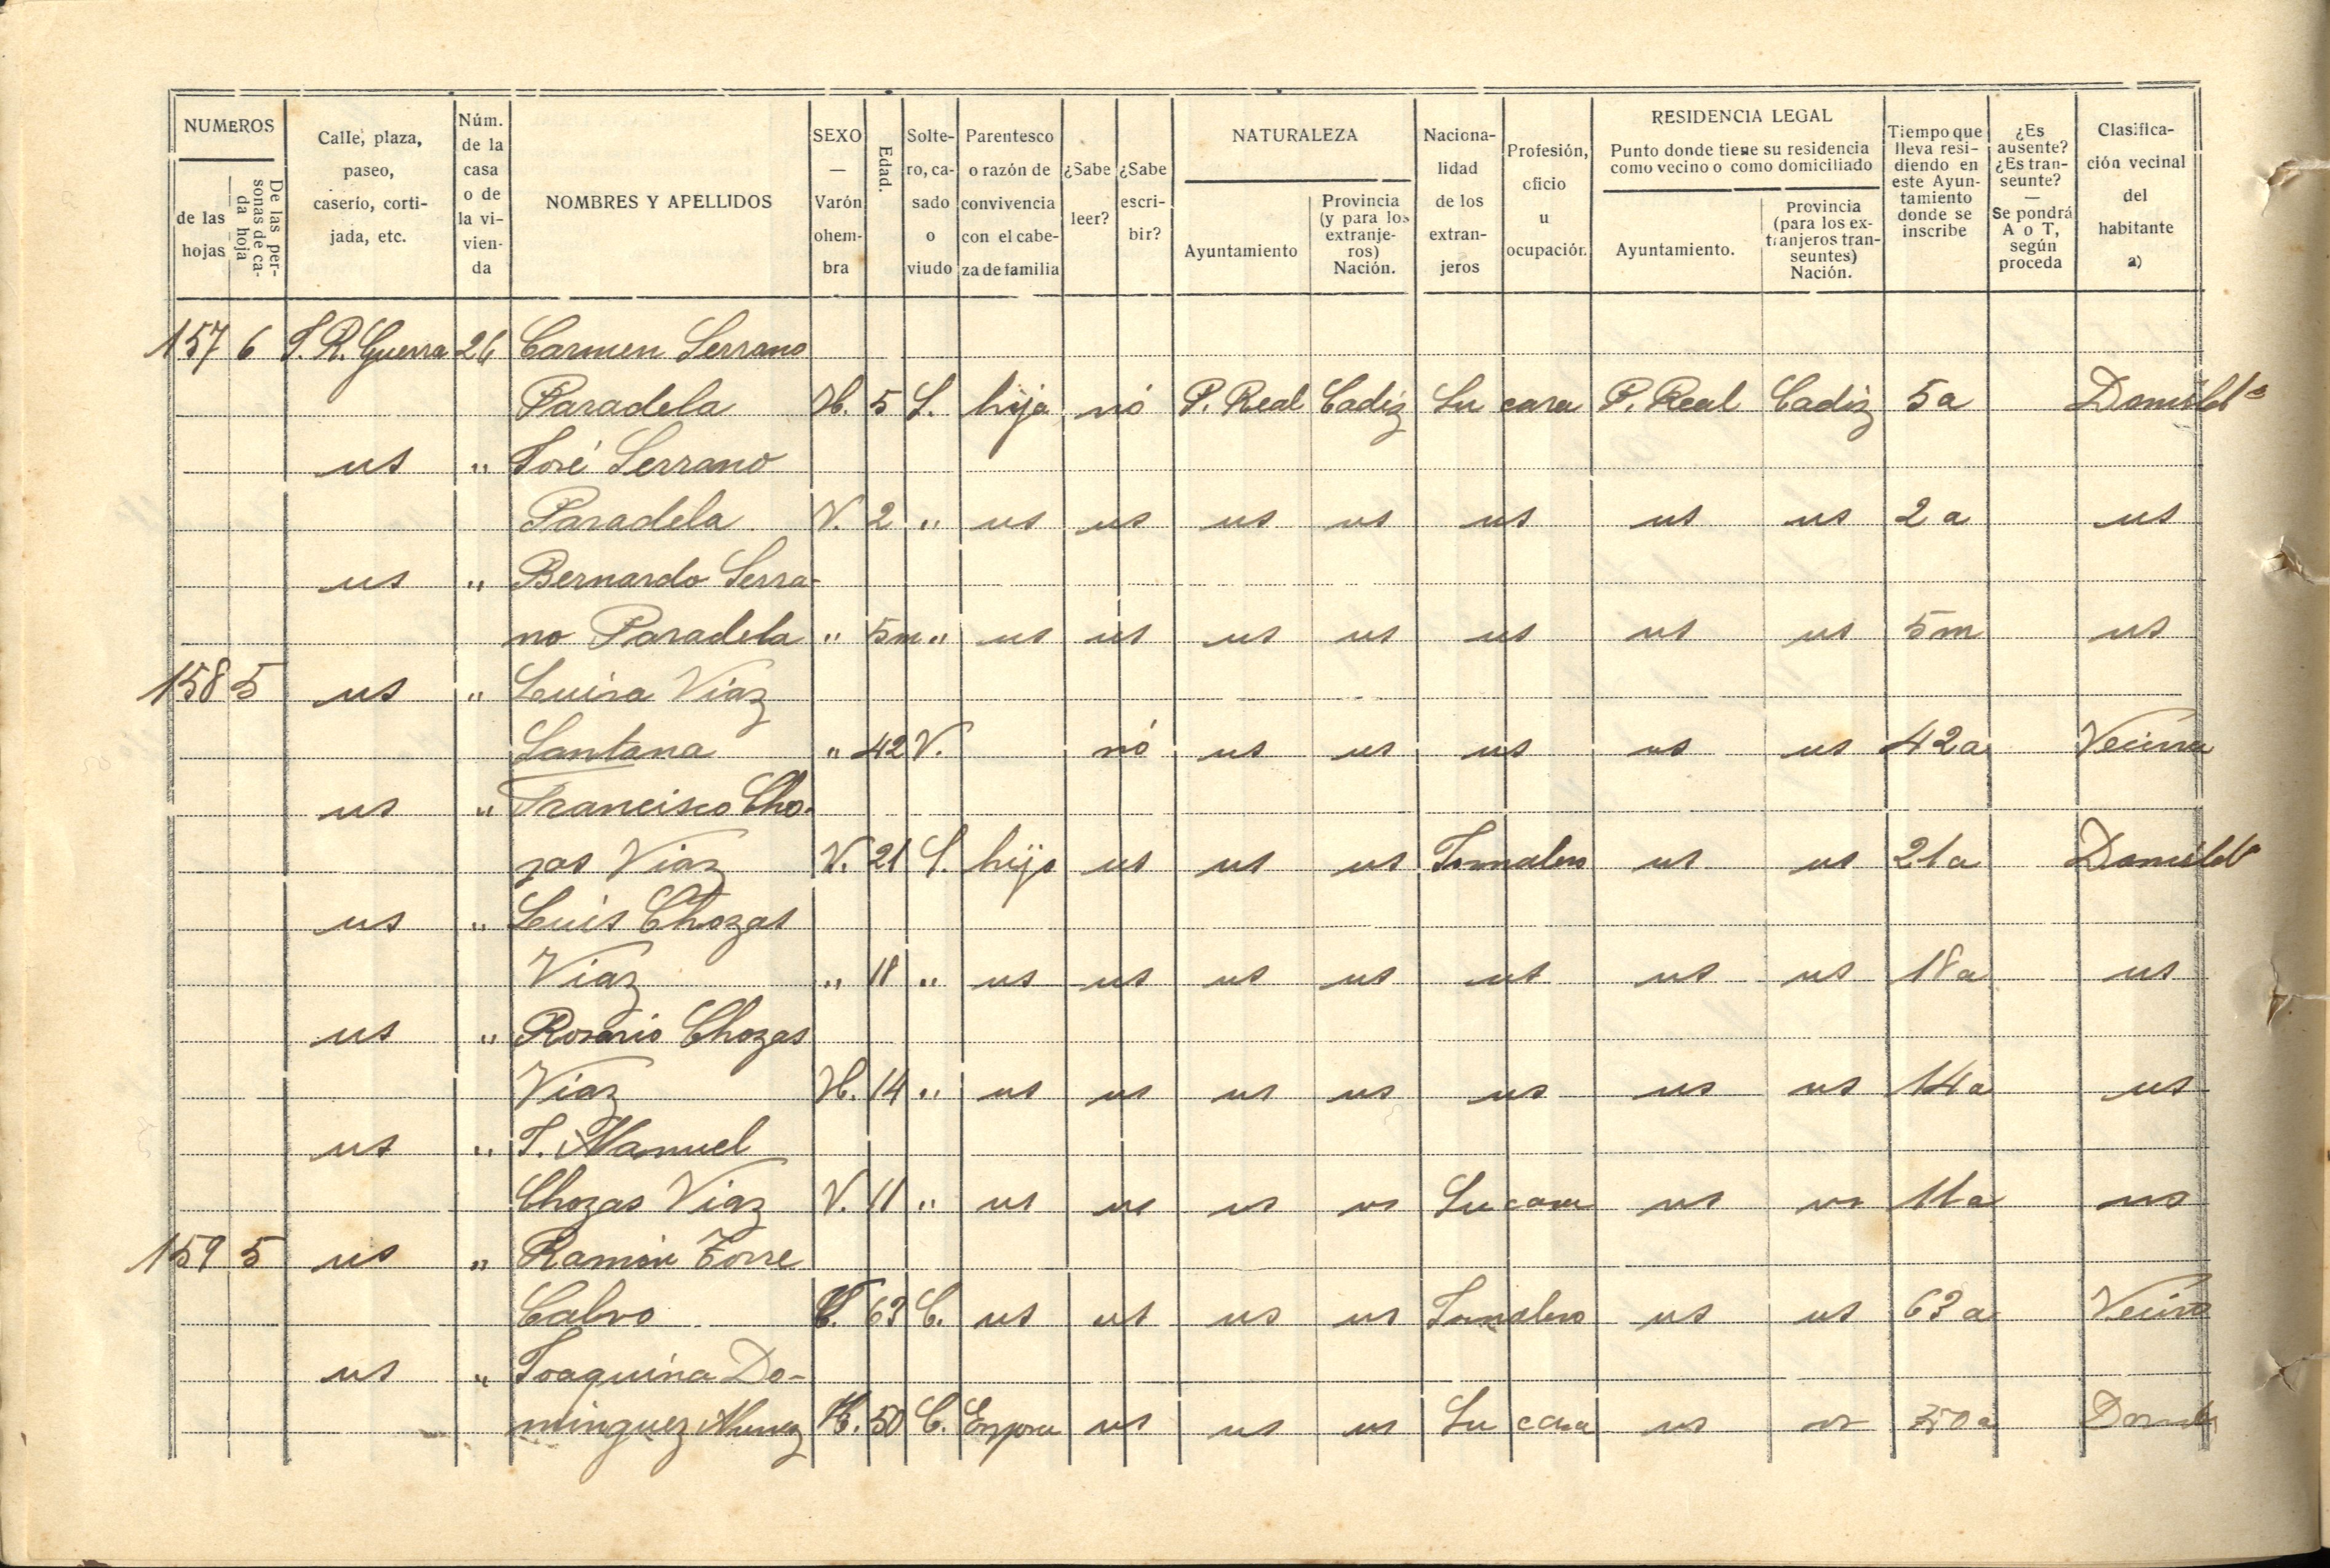 NUMEROS
de las hojas
De las personas de cada hoja
Calle, plaza, paseo, caserío, cortijada, etc.
Núm. de la casa o de la vivienda
NOMBRES Y APELLIDOS
SEXO — Varón ohembra
Edad.
Soltero, casado o viudo
Parentesco o razón de convivencia con el cabeza de familia
¿Sabe leer?
¿Sabe escribir?
NATURALEZA
Ayuntamiento
Provincia (y para los extranjeros) Nación.
Nacionalidad de los extranjeros
Profesión, oficio u ocupación.
RESIDENCIA LEGAL
Punto donde tiene su residencia como vecino o como domiciliado
Ayuntamiento.
Provincia (para los extranjeros transeuntes) Nación.
Tiempo que lleva residiendo en este Ayuntamiento donde se inscribe
¿Es ausente? ¿Es transeunte? — Se pondrá A o T, según proceda
Clasificación vecinal del habitante a)
157 6 S. R. Guerra 26 Carmen Serrano
Paradela H. 5 S. hija nó P. Real Cadiz Su casa P. Real Cadiz 5 a Domicilda
us " José Serrano
Paradela V. 2 " us us us us us us us 2 a us
us " Bernardo Serra-
no Paradela " 5m " us us us us us us us 5m us
158 5 us " Luisa Viaz
Santana " 42 V. nó us us us us us 42a Vecina
us " Francisco Cho-
zas Viaz V. 21 S. hijo us us us Jornalero us us 21a Domicildo
us " Luis Chozas
Viaz " 18 " us us us us us us us 18a us
us " Rosario Chozas
Viaz H. 14 " us us us us us us us 14a us
us " J. Manuel
Chozas Viaz V. 11 " us us us us Su casa us us 11a us
159 5 us " Ramón Torre
Calvo V. 63 C. us us us us Jornalero us us 63 a Vecino
us " Joaquina Do-
minguez Nunez H. 50 C. Esposa us us us Su casa us us 50a